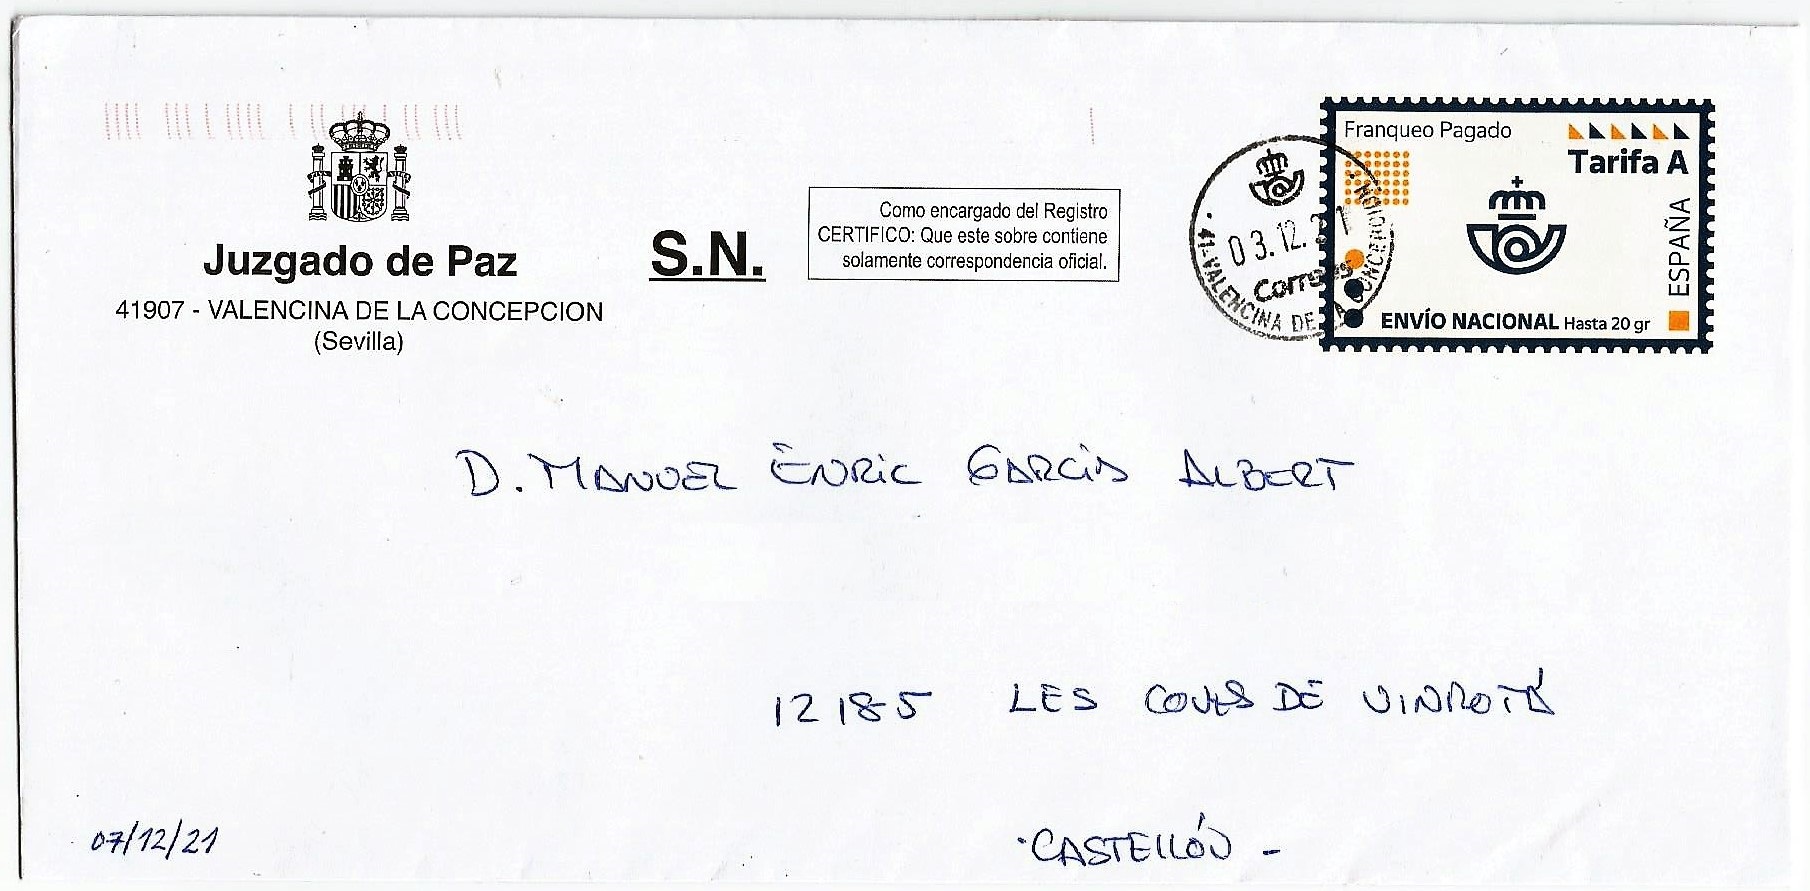 Juzgado de Paz
41907 - VALENCINA DE LA CONCEPCION
(Sevilla)
S.N.
Como encargado del Registro
CERTIFICO: Que este sobre contiene
solamente correspondencia oficial.
03.12.21
Correos
· 41-VALENCINA DE LA CONCEPCION ·
Franqueo Pagado
Tarifa A
ESPAÑA
ENVÍO NACIONAL Hasta 20 gr
D. MANUEL ENRIC GARCIA ALBERT
12185 LES COVES DE VINROMÀ
07/12/21
·CASTELLÓN -